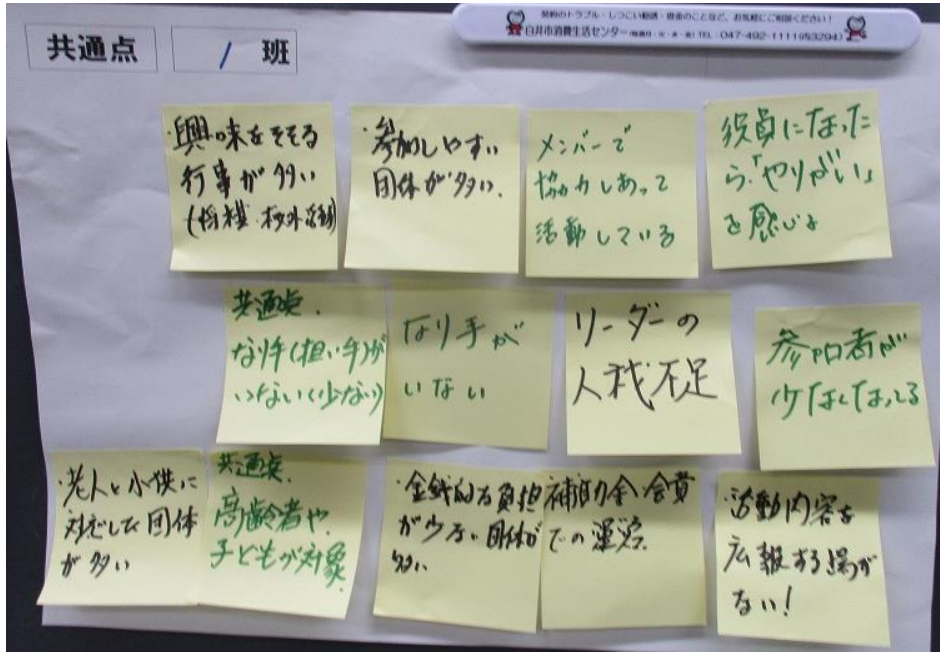 契約のトラブル・しつこい勧誘・借金のことなど、お気軽にご相談ください!
白井市消費生活センター(毎週月・火・木・金) TEL:047-492-1111(内3294)
共通点
1 班
・興味をそそる
行事が多い
(将棋・校外活動)
・参加しやすい
団体が多い.
メンバーで
協力しあって
活動している
役員になった
ら「やりがい」
を感じる
共通点.
なり手(担い手)が
いない(少ない)
なり手が
いない
リーダーの
人材不足
参加者が
少なくなってる
・老人と小供に
対応した団体
が多い
共通点.
高齢者や.
子どもが対象.
・金銭的な負担
が少ない団体が
多い
補助金・会費
での運営.
活動内容を
広報する場が
ない!